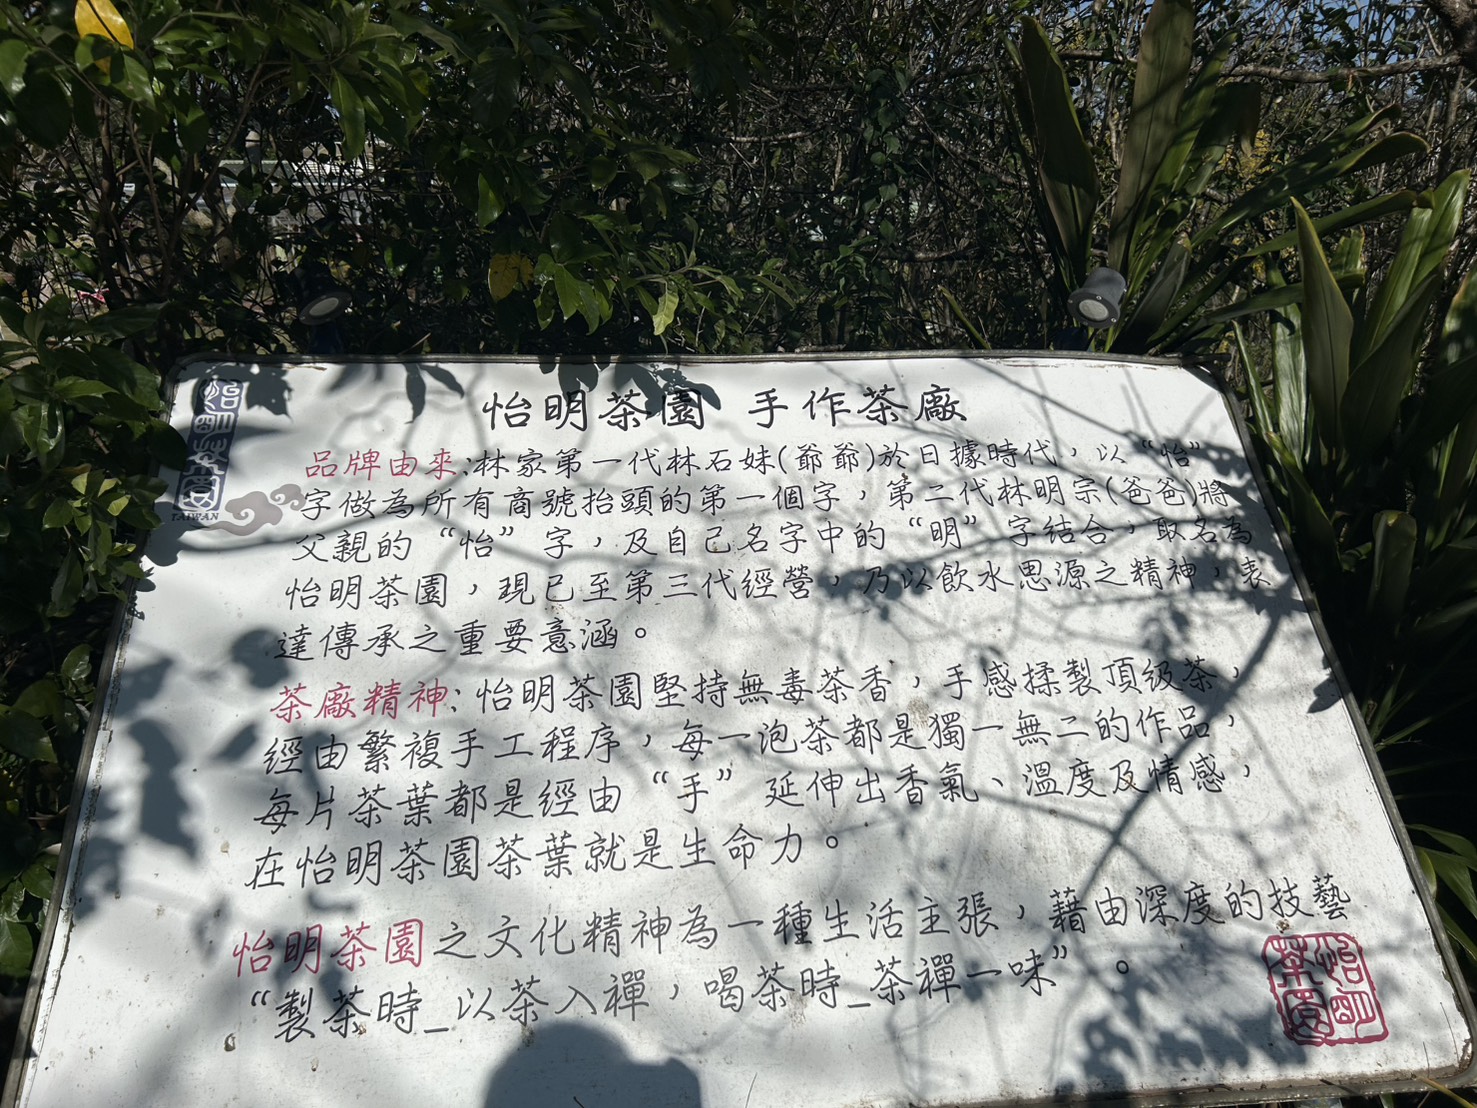 怡明茶園 手作茶廠
怡明茶園
TAIWAN
品牌由來:林家第一代林石妹(爺爺)於日據時代，以“怡”
字做為所有商號抬頭的第一個字，第二代林明宗(爸爸)將
父親的“怡”字，及自己名字中的“明”字結合，取名為
怡明茶園，現已至第三代經營，乃以飲水思源之精神，表
達傳承之重要意涵。
茶廠精神:怡明茶園堅持無毒茶香，手感揉製頂級茶，
經由繁複手工程序，每一泡茶都是獨一無二的作品，
每片茶葉都是經由“手”延伸出香氣、溫度及情感，
在怡明茶園茶葉就是生命力。
怡明茶園之文化精神為一種生活主張，藉由深度的技藝
“製茶時_以茶入禪，喝茶時_茶禪一味”。
怡明
茶園